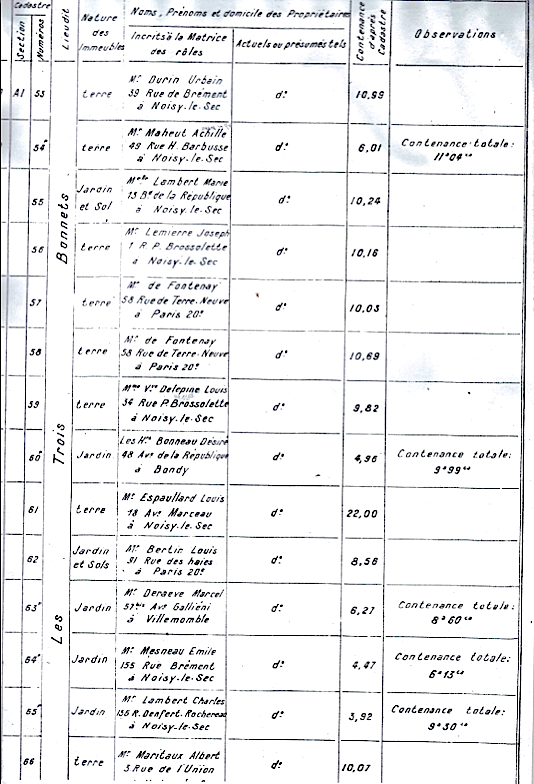 Cadastre
Section
Numéros
Lieudit
Nature
des
Immeubles
Noms, Prénoms et domicile des Propriétaires
Incrits à la Matrice
des rôles
Actuels ou présumés tels
Contenance
d'après
Cadastre
Observations
Les Trois Bonnets
AI 53 terre
Mr Durin Urbain
39 Rue de Brément
à Noisy-le-Sec
do 10,99
54p terre
Mr Maheut Achille
49 Rue H. Barbusse
à Noisy-le-Sec
do 6,01
Contenance totale:
11a04ca
55 Jardin
et Sol
Melle Lambert Marie
13 Bd de la République
à Noisy-le-Sec
do 10,24
56 terre
Mr Lemierre Joseph
1 R. P. Brossolette
à Noisy-le-Sec
do 10,16
57 terre
Mr de Fontenay
58 Rue de Terre-Neuve
à Paris 20e
do 10,03
58 terre
Mr de Fontenay
58 Rue de Terre-Neuve
à Paris 20e
do 10,69
59 terre
Mme Vve Delepine Louis
34 Rue P. Brossolette
à Noisy-le-Sec
do 9,82
60p Jardin
Les Hrs Bonneau Désiré
48 Ave de la République
à Bondy
do 4,96
Contenance totale:
9a99ca
61 terre
Mr Espaullard Louis
18 Ave Marceau
à Noisy-le-Sec
do 22,00
62 Jardin
et Sols
Mr Bertin Louis
91 Rue des haies
à Paris 20e
do 8,56
63p Jardin
Mr Deraeve Marcel
57bis Ave Galliéni
à Villemomble
do 6,27
Contenance totale:
8a60ca
64p Jardin
Mr Mesneau Emile
155 Rue Brément
à Noisy-le-Sec
do 4,47
Contenance totale:
6a13ca
65p Jardin
Mr Lambert Charles
136 R. Denfert-Rochereau
à Noisy-le-Sec
do 3,92
Contenance totale:
9a30ca
66 terre
Mr Maritaux Albert
5 Rue de l'Union
do 10,07